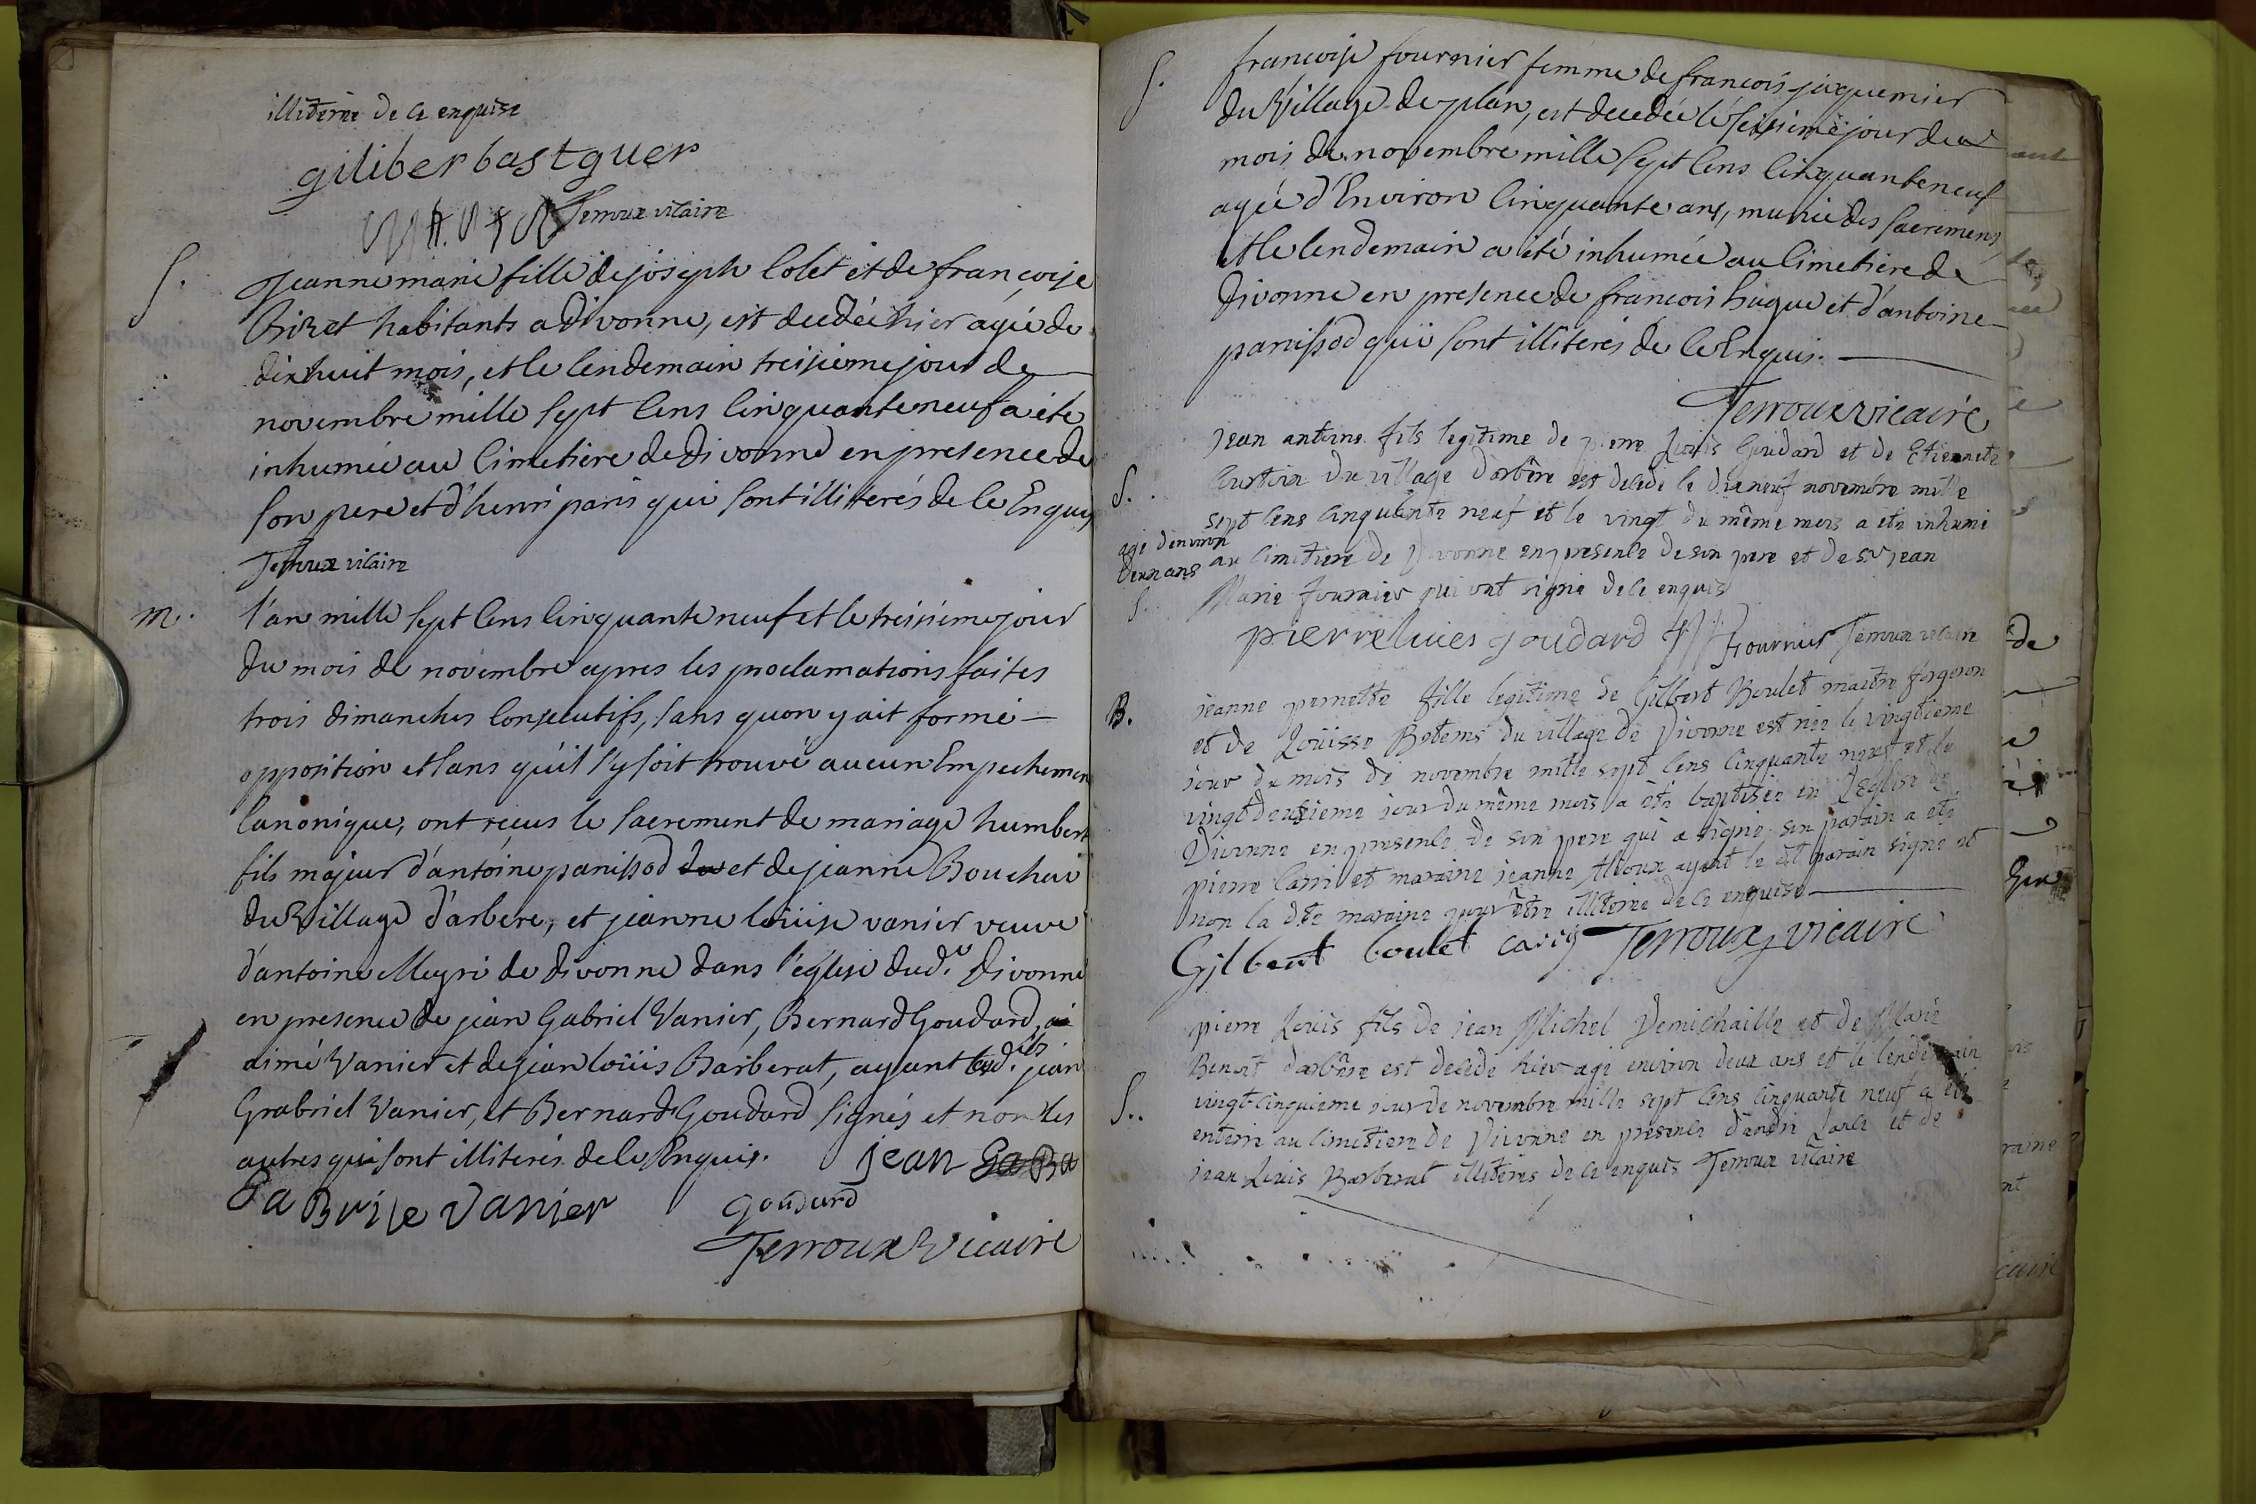 illiterée de ce enquise
giliber bastguer
Terroux vicaire
S.
Jeanne marie fille de joseph Colet et de françoise
Bizet habitants a Divonne, est decedée hier agée de
dix huit mois, et le lendemain treisieme jour de
novembre mille sept cens cinquante neuf a été
inhumée au cimetiere de Divonne en presence de
son pere et d'henri paris qui sont illiterés de ce Enquis
Terroux vicaire
m.
l'an mille sept cens cinquante neuf et le treisieme jour
du mois de novembre apres les proclamations faites
trois dimanches consecutifs, sans quon y ait formé
opposition et sans qu'il s'y soit trouvé aucun Empechement
Canonique, ont reçus le sacrement de mariage humbert
fils majeur d'antoine panissod et de jeanne Bouchu
du Village d'arbere, et jeanne loüise vanier veuve
d'antoine Megri de divonne dans l'église dud.t Divonne
en presence de jean Gabriel Vanier, Bernard Goudard,
aimé Vanier et de jean loüis Barberat, ayant lesd.its jean
Grabriel Vanier, et Bernard Goudard signés et non les
autres qui sont illiterés de ce Enquis. jean
Ga Brile Vanier goudard
Terroux Vicaire
S.
francoise fournier femme de francois jaquemier
du Village de plan, est decedée le seisieme jour du
mois de novembre mille sept cens cinquante neuf
agée d'Environ cinquante ans, munie des sacremens
et le lendemain a été inhumée au cimetiere de
Divonne en presence de francois huque et d'antoine
panissod qui sont illiterés de ce Enquis.
Terroux vicaire
S.
Jean antoine fils legitime de pierre Loüis Goudard et de Etiennette
du village d'arbère est decedé le dixneuf novembre mille
sept cens cinquante neuf et le vingt du même mois a été inhumé
agé d'environ
deux ans
au cimetiere de Divonne en presence de son pere et de sr jean
S.
Marie fournier qui ont signé de ce enquis
pierre luies goudard Fournier Terroux vicaire
B.
jeanne pernette fille legitime de Gilbert Boulet maitre forgeron
et de Loüisse Botems du village de Divonne est née le vingtieme
jour du mois de novembre mille sept cens cinquante neuf et le
vingt deuxieme jour du même mois a été baptisée en l'Eglise de
Divonne en presence de son pere qui a signé son parain a été
pierre Carri et maraine jeanne ayant le dit parain signé et
non la dte maraine pour être illiterée de ce enquise
Gilbert boulet carry Terroux vicaire
S..
pierre Loüis fils de jean Michel Demichaille et de Marie
Benoit d'arbère est decedé hier agé environ deux ans et le lendemain
vingt-cinquieme jour de novembre mille sept cens cinquante neuf a été
enterré au cimetiere de Divonne en presence d'andré et de
jean Loüis Barberat illiterés de ce enquis Terroux vicaire